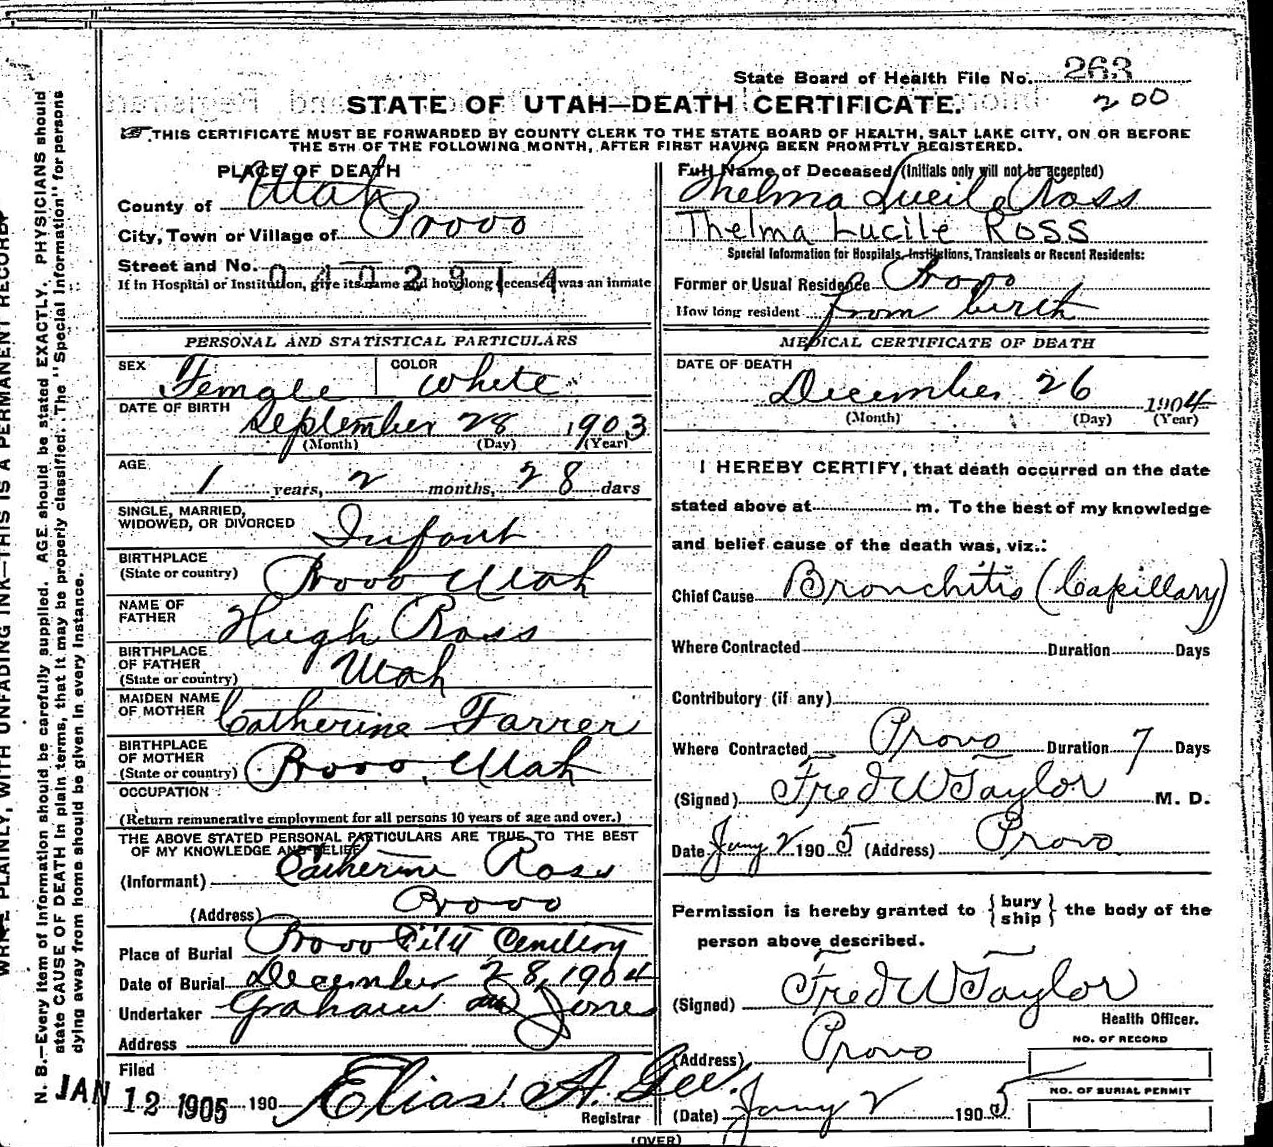 State Board of Health File No. 263
200
STATE OF UTAH—DEATH CERTIFICATE.
THIS CERTIFICATE MUST BE FORWARDED BY COUNTY CLERK TO THE STATE BOARD OF HEALTH, SALT LAKE CITY, ON OR BEFORE
THE 5TH OF THE FOLLOWING MONTH, AFTER FIRST HAVING BEEN PROMPTLY REGISTERED.
PLACE OF DEATH
County of Utah
City, Town or Village of Provo
Street and No. 0402814
If in Hospital or Institution, give its name and how long deceased was an inmate
PERSONAL AND STATISTICAL PARTICULARS
SEX Female COLOR White
DATE OF BIRTH September 28 1903
(Month) (Day) (Year)
AGE 1 years, 2 months, 28 days
SINGLE, MARRIED,
WIDOWED, OR DIVORCED Infant
BIRTHPLACE
(State or country) Provo Utah
NAME OF
FATHER Hugh Ross
BIRTHPLACE
OF FATHER
(State or country) Utah
MAIDEN NAME
OF MOTHER Catherine Farrer
BIRTHPLACE
OF MOTHER
(State or country) Provo, Utah
OCCUPATION
(Return remunerative employment for all persons 10 years of age and over.)
THE ABOVE STATED PERSONAL PARTICULARS ARE TRUE TO THE BEST
OF MY KNOWLEDGE AND BELIEF
(Informant) Catherine Ross
(Address) Provo
Place of Burial Provo City Cemetery
Date of Burial December 28, 1904
Undertaker Graham Jones
Address
Filed
JAN 12 1905 190 Elias A. Gee.
Registrar
Full Name of Deceased (Initials only will not be accepted)
Thelma Lucile Ross
Thelma Lucile Ross
Special Information for Hospitals, Institutions, Transients or Recent Residents:
Former or Usual Residence Provo
How long resident from birth
MEDICAL CERTIFICATE OF DEATH
DATE OF DEATH
December 26 1904
(Month) (Day) (Year)
I HEREBY CERTIFY, that death occurred on the date
stated above at m. To the best of my knowledge
and belief cause of the death was, viz.:
Chief Cause Bronchitis (Capillary)
Where Contracted Duration Days
Contributory (if any)
Where Contracted Provo Duration 7 Days
(Signed) Fred W Taylor M. D.
Date Jany 2 1905 (Address) Provo
Permission is hereby granted to {bury ship} the body of the
person above described.
(Signed) Fred W Taylor
Health Officer.
(Address) Provo
NO. OF RECORD
NO. OF BURIAL PERMIT
(Date) Jany 2 1905
(OVER)
WRITE PLAINLY, WITH UNFADING INK—THIS IS A PERMANENT RECORD
N. B.—Every item of information should be carefully supplied. AGE should be stated EXACTLY. PHYSICIANS should
state CAUSE OF DEATH in plain terms, that it may be properly classified. The "Special Information" for persons
dying away from home should be given in every instance.